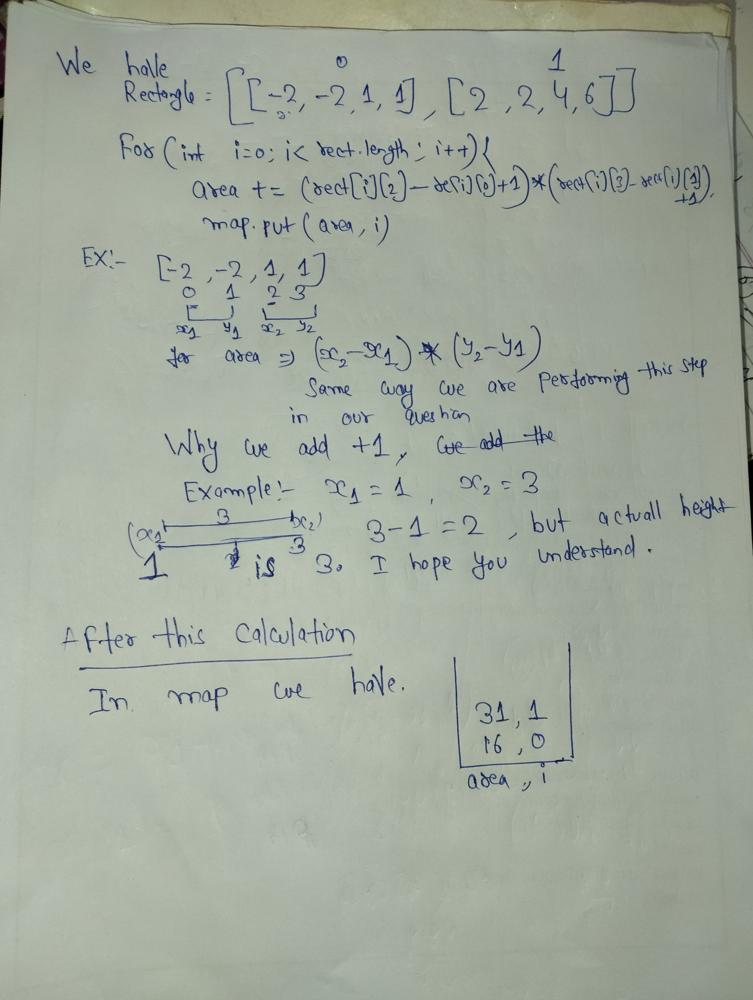 We have
0 1
Rectangle = [[-2, -2, 1, 1], [2, 2, 4, 6]]
For (int i=0; i< rect.length; i++) {
area += (rect[i][2] - re[i][0]+1) * (rect[i][3] - rect[i][1])
+1
map.put (area, i)
EX:- [-2, -2, 1, 1]
0 1 2 3
x1 y1 x2 y2
for area => (x2-x1) * (y2-y1)
Same way we are performing this step
in our question
Why we add +1, we add the
Example:- x1 = 1, x2 = 3
(x1 3 x2) 3-1 = 2, but actuall height
1 2 3 is 3. I hope you understand.
After this calculation
In map we have.
31, 1
16, 0
area, i